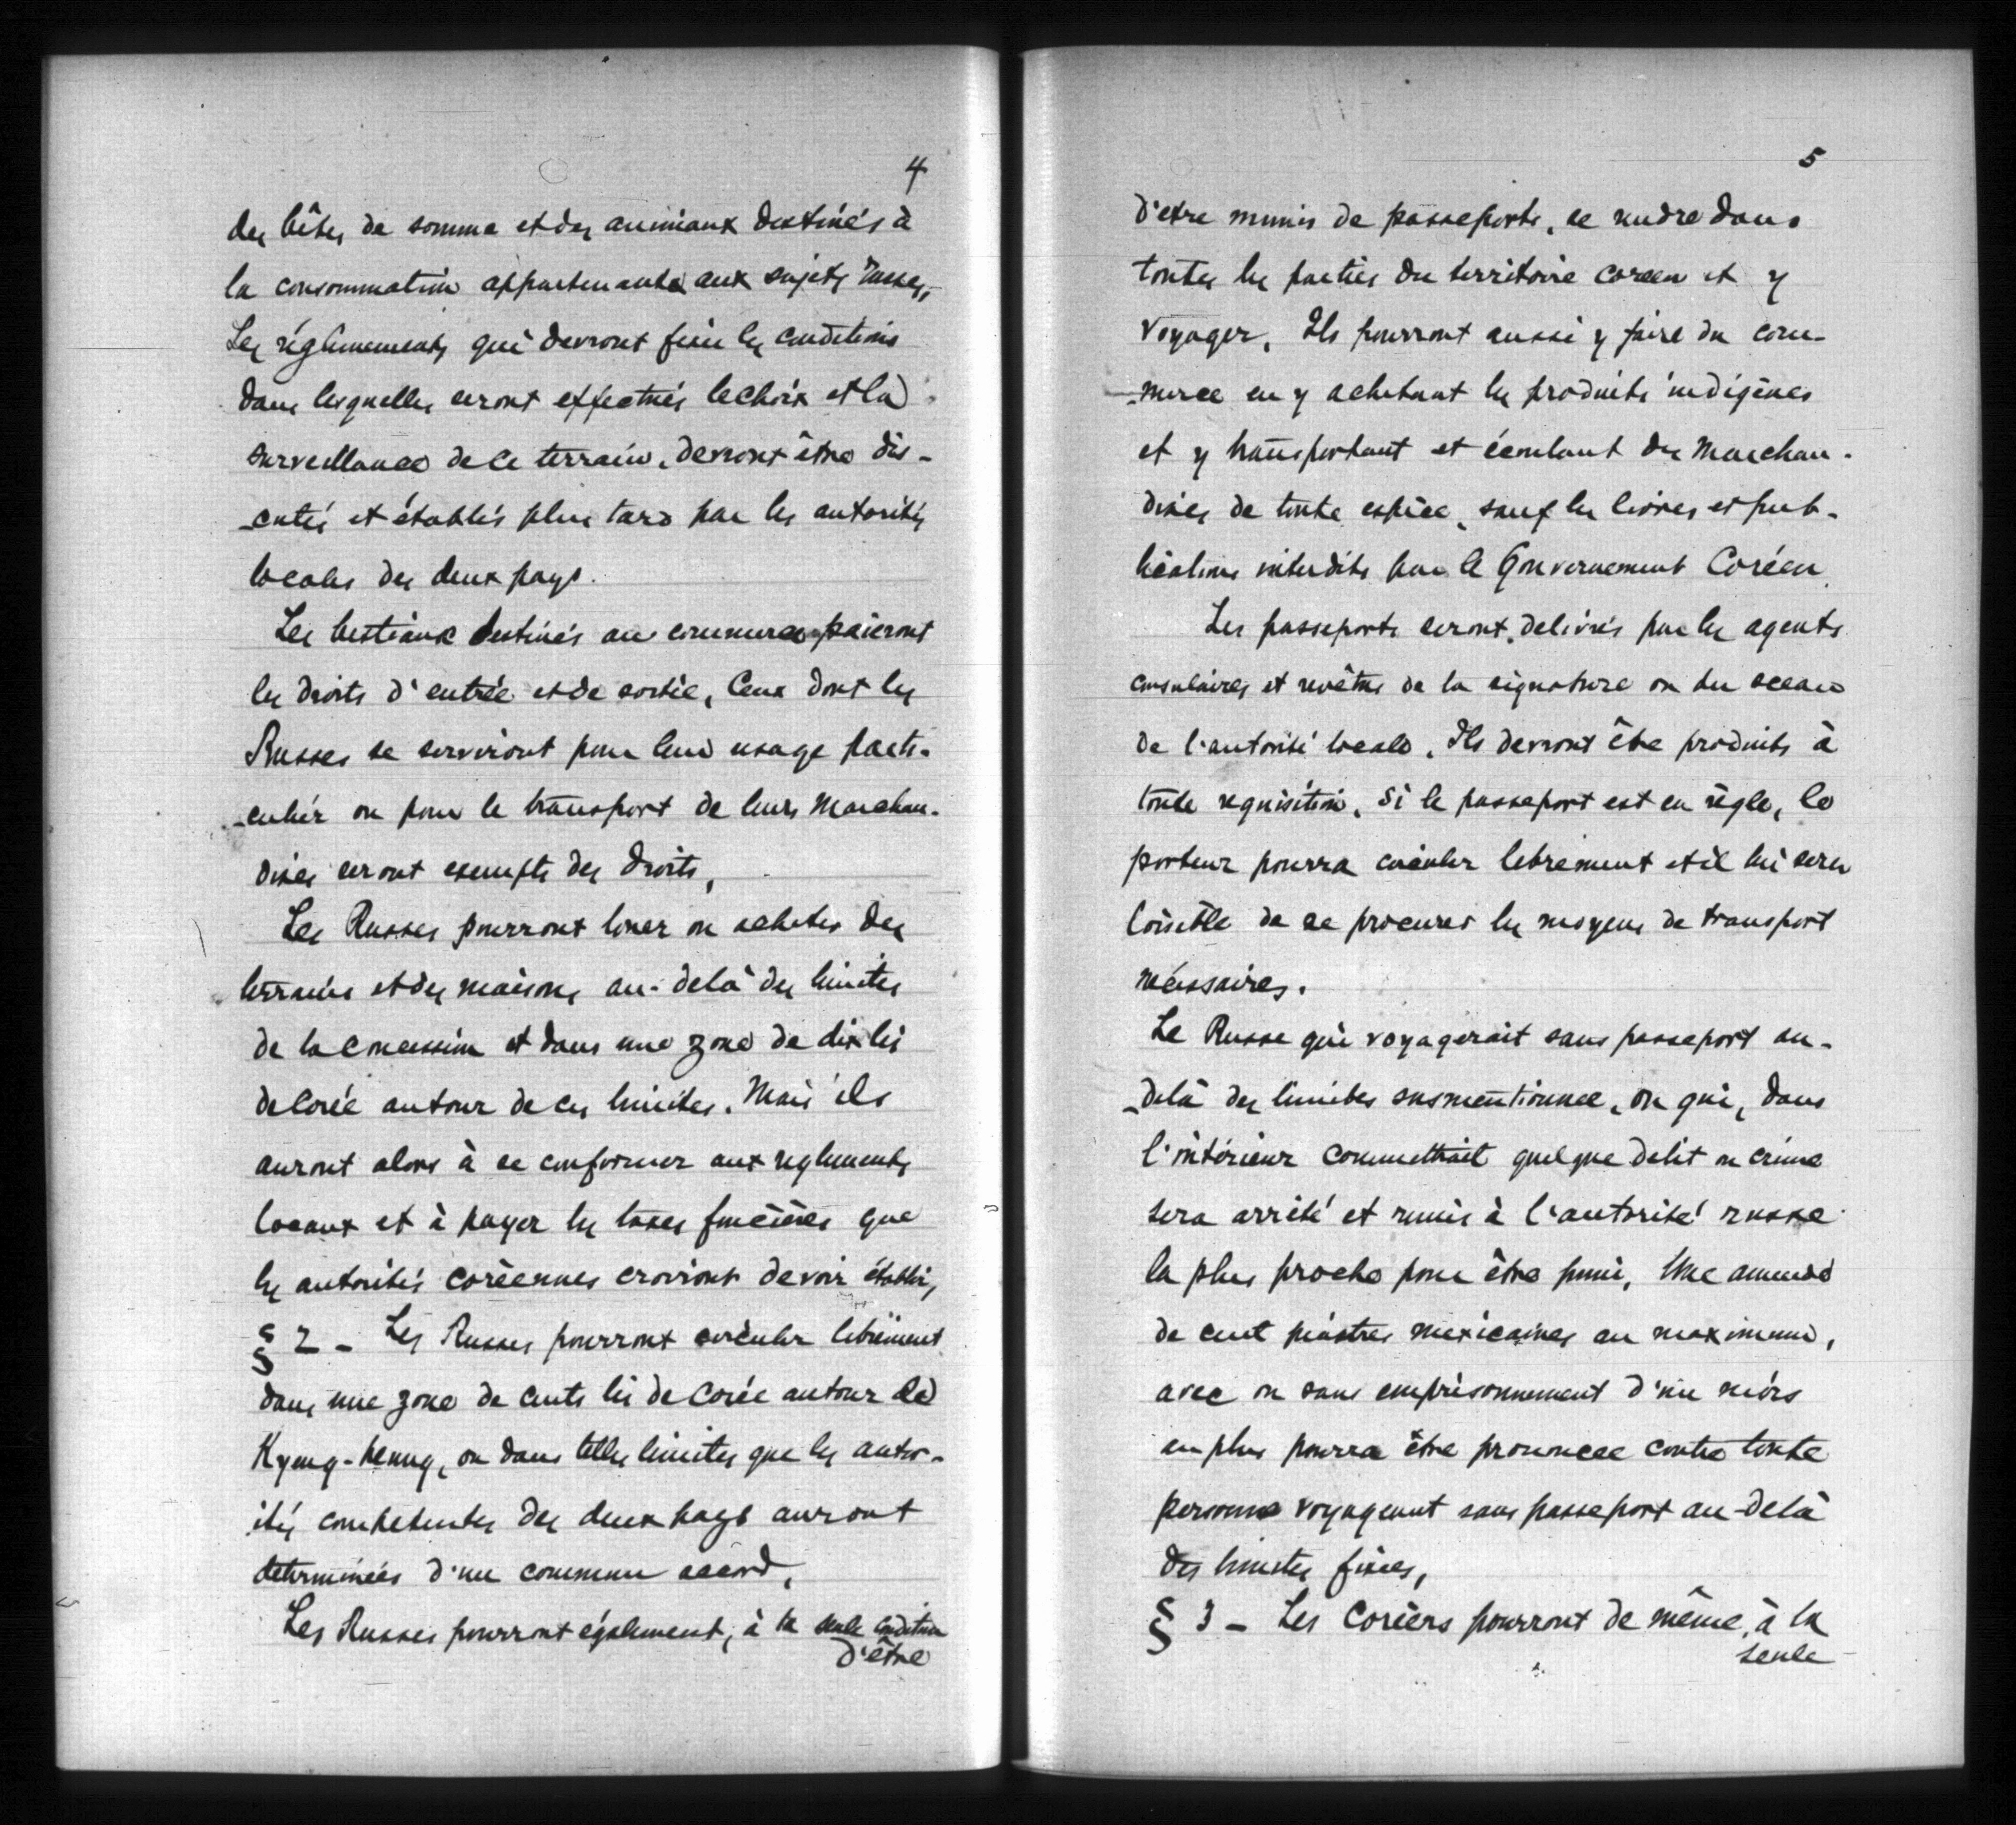 4
des bêtes de somme et des animaux destinés à
la consommation appartenants aux sujets russes,
Les réglements qui devront fixer les conditions
dans lesquelles seront effectués le choix et la
surveillance de ce terrain, devront être dis-
-cutés et établis plus tard par les autorités
locales des deux pays.
Les bestiaux destinés au commerce paieront
les droits d'entrée et de sortie, Ceux dont les
Russes se serviront pour leur usage parti-
-culier ou pour le transport de leurs marchan-
dises seront exempts des droits,
Les Russes pourront louer ou acheter des
terrains et des maisons au-delà des limites
de la concession et dans une zone de dix lis
de Corée autour de ces limites. Mais ils
auront alors à se conformer aux reglements
locaux et à payer les taxes foncières que
les autorités coréennes croiront devoir établir,
§ 2 - Les Russes pourront circuler librement
dans une zone de cents lis de Corée autour de
Kyeng-heung, ou dans telles limites que les autor-
ités competentes des deux pays auront
determinées d'un commun accord,
Les Russes pourront également, à la seule condition
d'être
5
d'etre munis de passeports, se rendre dans
toutes les parties du territoire coreen et y
voyager, Ils pourront aussi y faire du com-
-merce en y achetant les produits indigènes
et y transportant et écoulant des marchan-
dises de toute espèce, sauf les livres et pub-
lications interdits par le Gouvernement Coréen
Les passeports seront, delivrés par les agents
consulaires et revêtus de la signature ou du sceau
de l'autorité locale, Ils devront être produits à
toute requisition, Si le passeport est en règle, le
porteur pourra circuler librement et il lui sera
loisible de se procurer les moyens de transport
nécessaires.
Le Russe qui voyagerait sans passeport au-
-delà des limites susmentionnee, ou qui, dans
l'intérieur commettrait quelque delit ou crime
sera arrêté et remis à l'autorité russe
la plus proche pour être puni, Une amende
de cent piastres mexicaines au maximum,
avec ou sans emprisonnement d'un mois
en plus pourra être prononcee contre toute
personne voyageant sans passeport au-delà
des limites fixées,
§ 3 - Les Coréens pourront de même, à la
seule